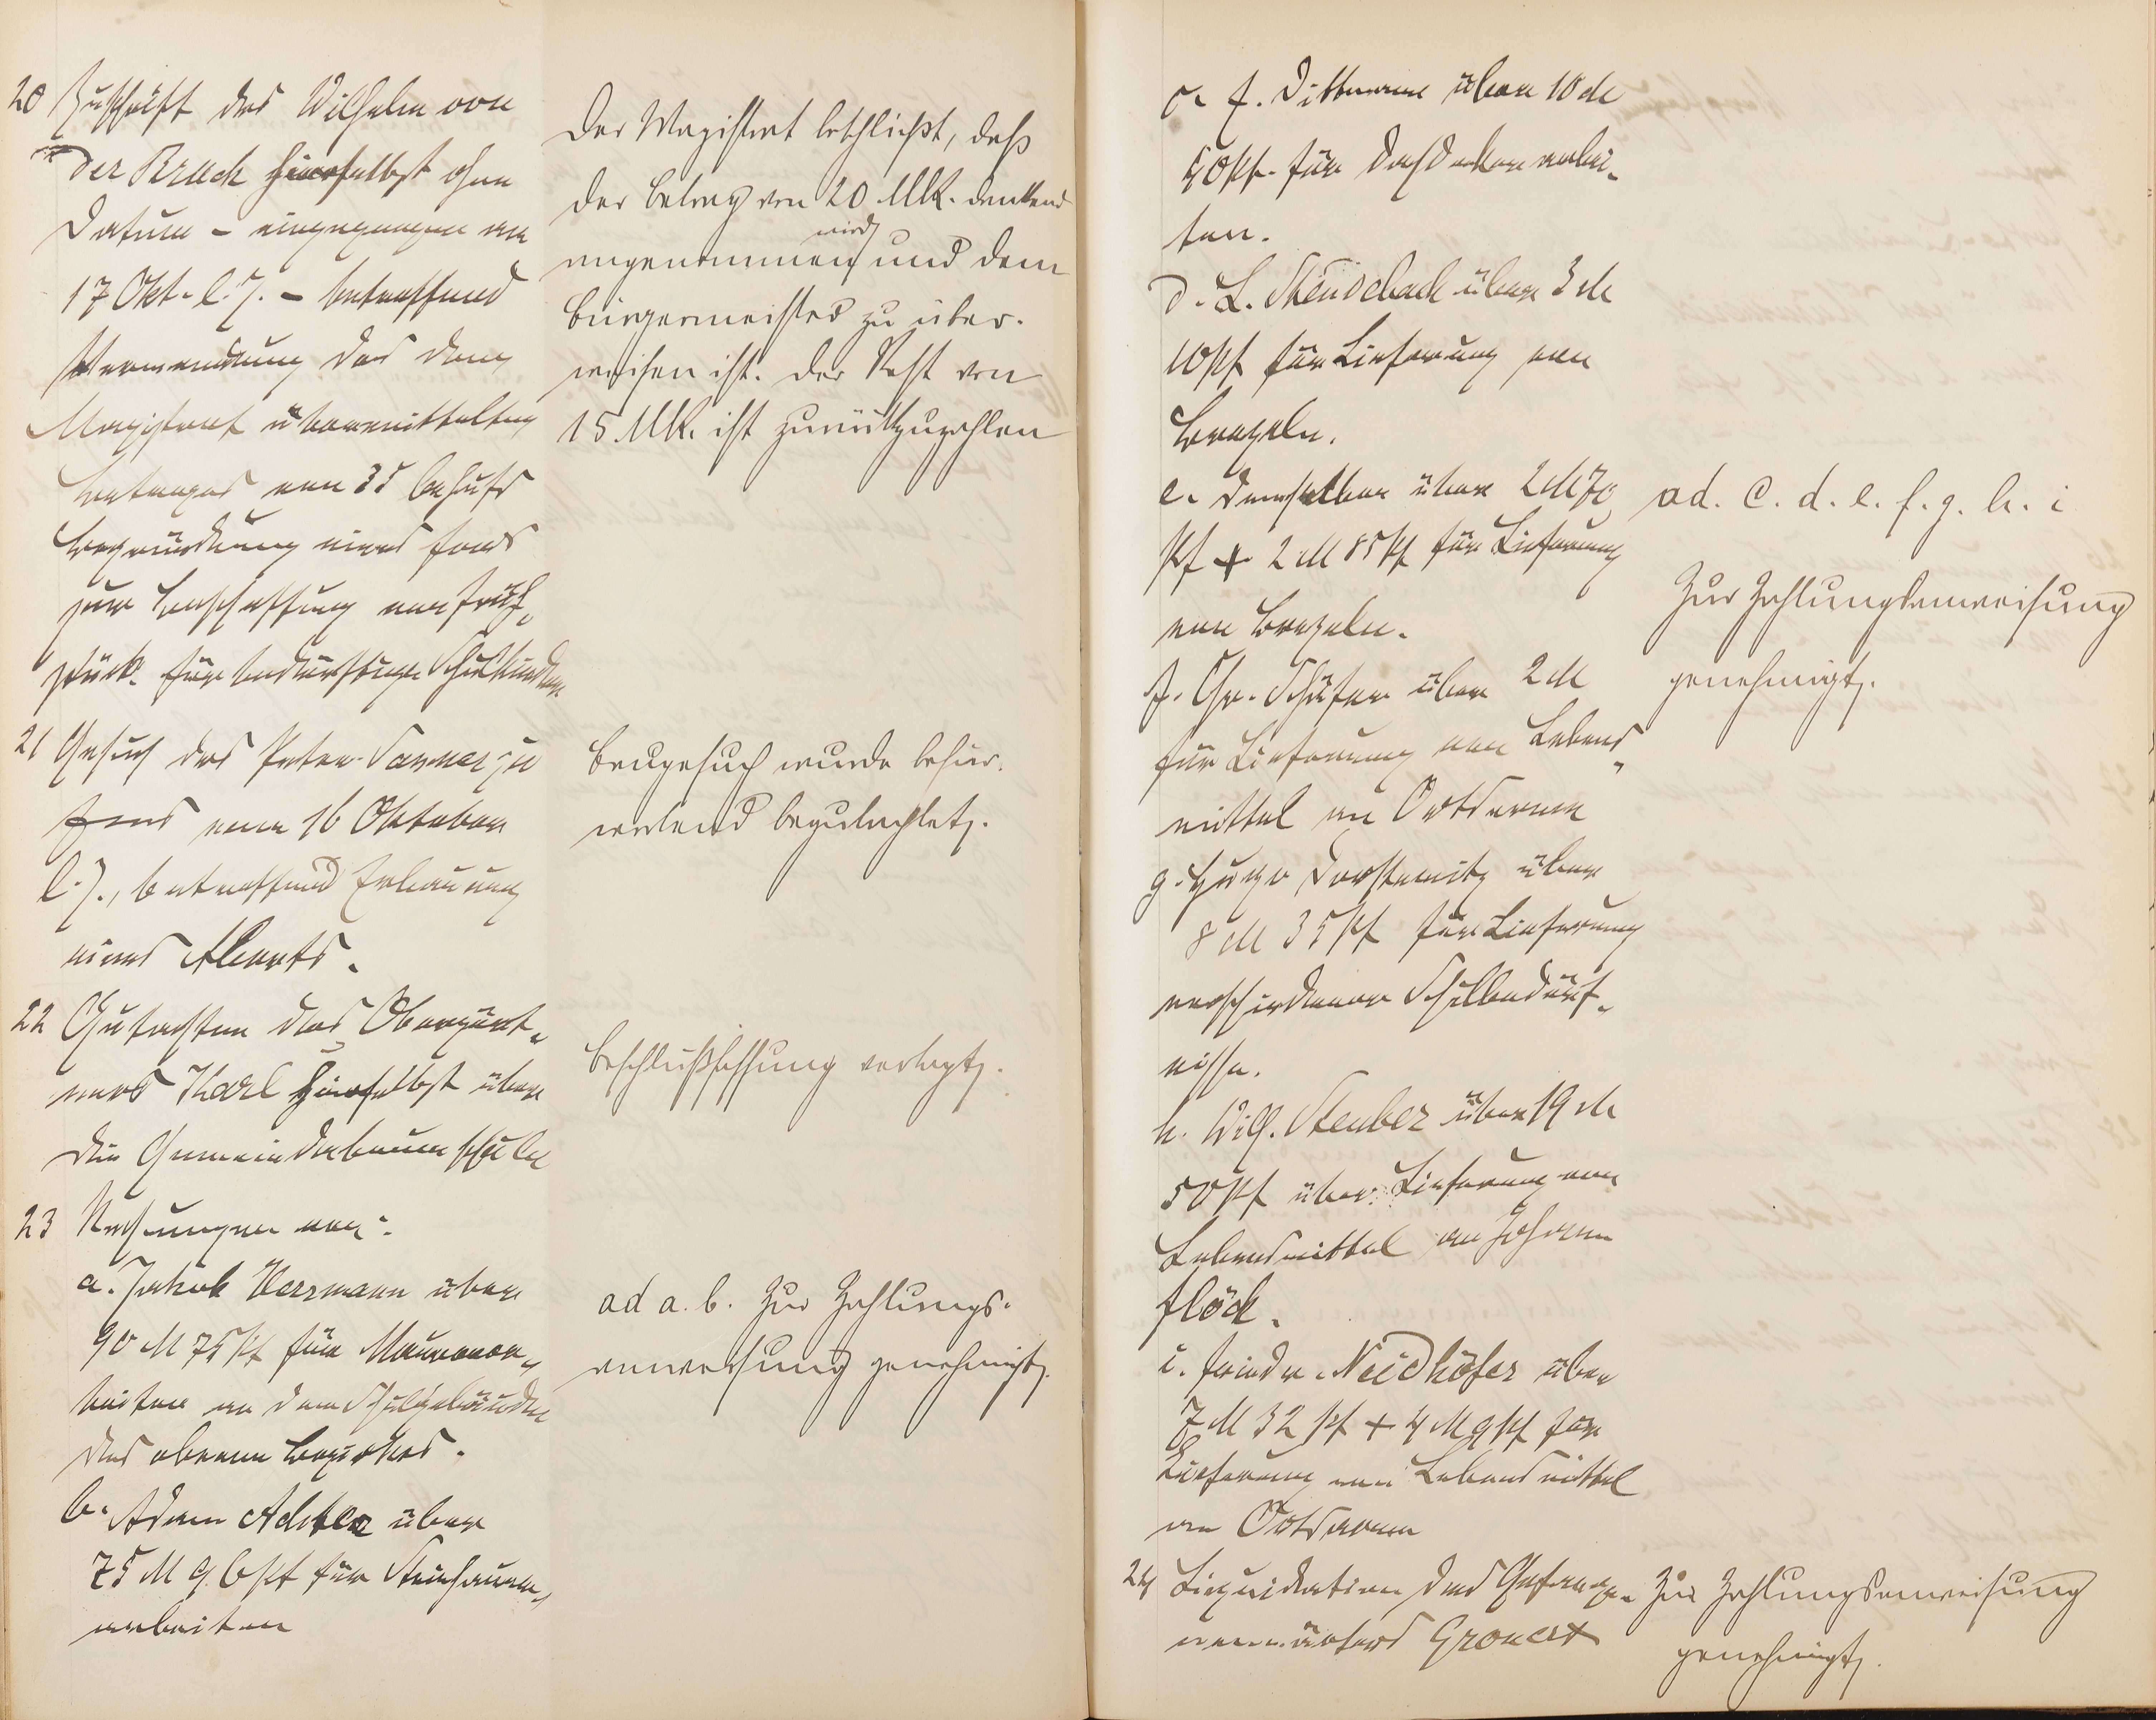 20 Zuschrift des Wilhelm von
der Bruck hierselbst ohne
Datum - eingegangen am
17 Okt. l. J. - betreffend
Verwendung des dem
Magistrat übermittelten
Betrages von 35 behufs
Begründung eines Fonds
zur Beschaffung von Früh-
stück für bedürftige Schulkinder
Der Magistrat beschließt, daß
der Betrag von 20 Mk. dankend
angenommen wird und dem
Bürgermeister zu über-
weisen ist. Der Rest von
15 Mk. ist zurückzuzahlen
21 Gesuch des Peter Sanner zu
Fons vom 16 Oktober
l. J., betreffend Erbauung
eines Aborts.
Baugesuch wurde befür-
wortend begutachtet.
22 Gutachten des Obergärt-
ners Karl hierselbst über
die Gemeindebaumschule
Beschlußfassung vertagt.
23 Rechnungen von:
a. Jakob Herrmann über
90 M 75 Pf für Maurerar-
beiten an dem Schulgebäude
des oberen Bezirkes.
b. Adam Achter über
75 M 96 Pf für Steinhauer-
arbeiten
ad a. b. Zur Zahlungs-
anweisung genehmigt.
c. F. Dittmann über 10 M
40 Pf. für Dachdeckerarbei-
ten.
d. L. Steudebach über 3 M
10 Pf für Lieferung von
Brezeln.
e. Demselben über 2 M 70
Pf + 2 M 85 Pf für Lieferung
von Brezeln.
f. Chr. Schäfer über 2 M
für Lieferung von Lebens-
mittel an Ortsarme
g. Hugo über
8 M 35 Pf für Lieferung
verschiedener Schulbedürf-
nisse.
h. Wilh. Steuber über 19 M
50 Pf über Lieferung von
Lebensmittel an Johann
Flöck.
i. Friedr. Neidhöfer über
7 M 32 Pf + 4 M 9 Pf für
Lieferung von Lebensmittel
an Ortsarme
ad. c. d. e. f. g. h. i
Zur Zahlungsanweisung
genehmigt.
24 Liquidation des Gefange-
nenwärters Gronert
Zur Zahlungsanweisung
genehmigt.